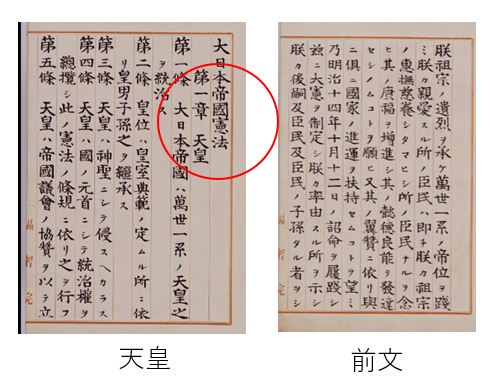 朕祖宗ノ遺烈ヲ承ケ萬世一系ノ帝位ヲ踐
ミ朕カ親愛スル所ノ臣民ハ即チ朕カ祖宗
ノ惠撫慈養シタマヒシ所ノ臣民ナルヲ念
ヒ其ノ康福ヲ増進シ其ノ懿德良能ヲ發達
セシメムコトヲ願ヒ又其ノ翼贊ニ依リ與
ニ俱ニ國家ノ進運ヲ扶持セムコトヲ望ミ
乃明治十四年十月十二日ノ詔命ヲ履踐シ
茲ニ大憲ヲ制定シ朕カ率由スル所ヲ示シ
朕カ後嗣及臣民及臣民ノ子孫タル者ヲシ
前文
大日本帝國憲法
第一章 天皇
第一條 大日本帝國ハ萬世一系ノ天皇之
ヲ統治ス
第二條 皇位ハ皇室典範ノ定ムル所ニ依
リ皇男子孫之ヲ繼承ス
第三條 天皇ハ神聖ニシテ侵スヘカラス
第四條 天皇ハ國ノ元首ニシテ統治權ヲ
總攬シ此ノ憲法ノ條規ニ依リ之ヲ行フ
第五條 天皇ハ帝國議會ノ協贊ヲ以テ立
天皇